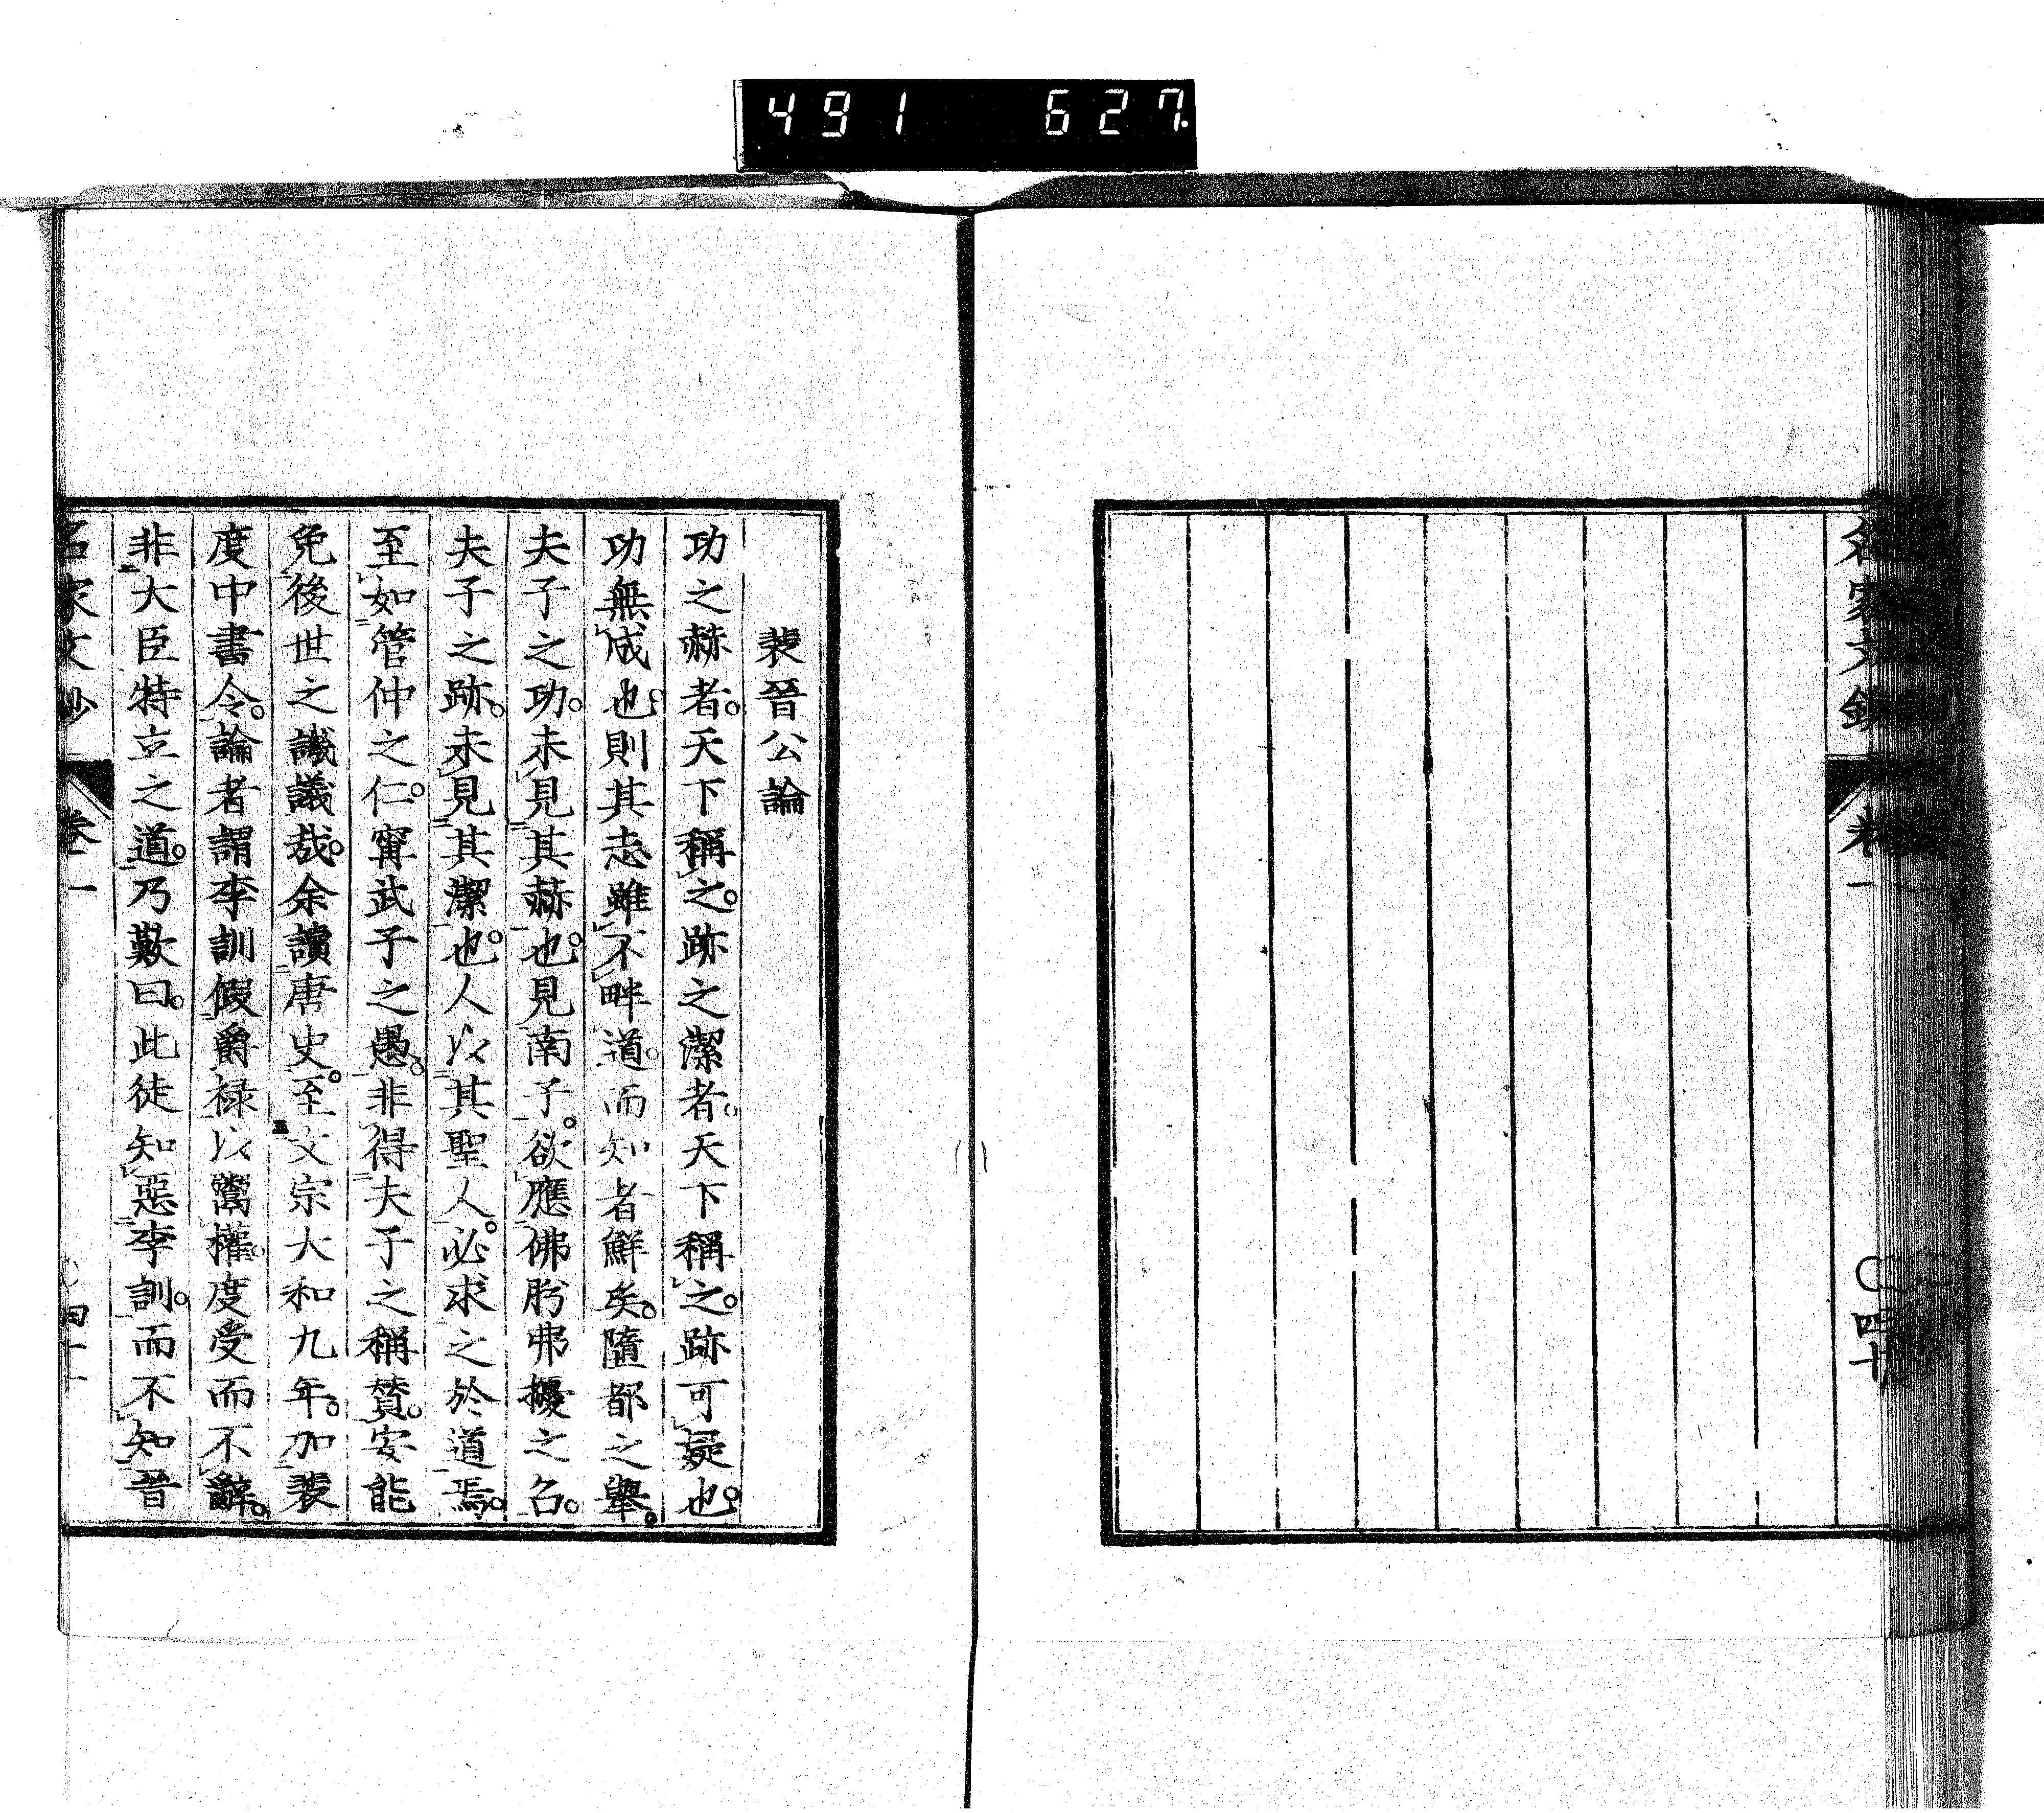 491 627
名家文鈔 卷一 四十
裴晉公論
功之赫者。天下稱之。跡之潔者。天下稱之。跡可疑也。
功無成也。則其志雖不畔道。而知者鮮矣。墮都之擧。
夫子之功。未見其赫也。見南子。欲應佛肸弗擾之召。
夫子之跡。未見其潔也。人以其聖人。必求之於道焉。
至如管仲之仁。甯武子之愚。非得夫子之稱賛。安能
免後世之譏議哉。余讀唐史。至文宗大和九年。加裴
度中書令。論者謂李訓假爵祿以鬻權。度受而不辭。
非大臣特立之道。乃歎曰。此徒知惡李訓。而不知晉
名家文鈔 卷一 四十一